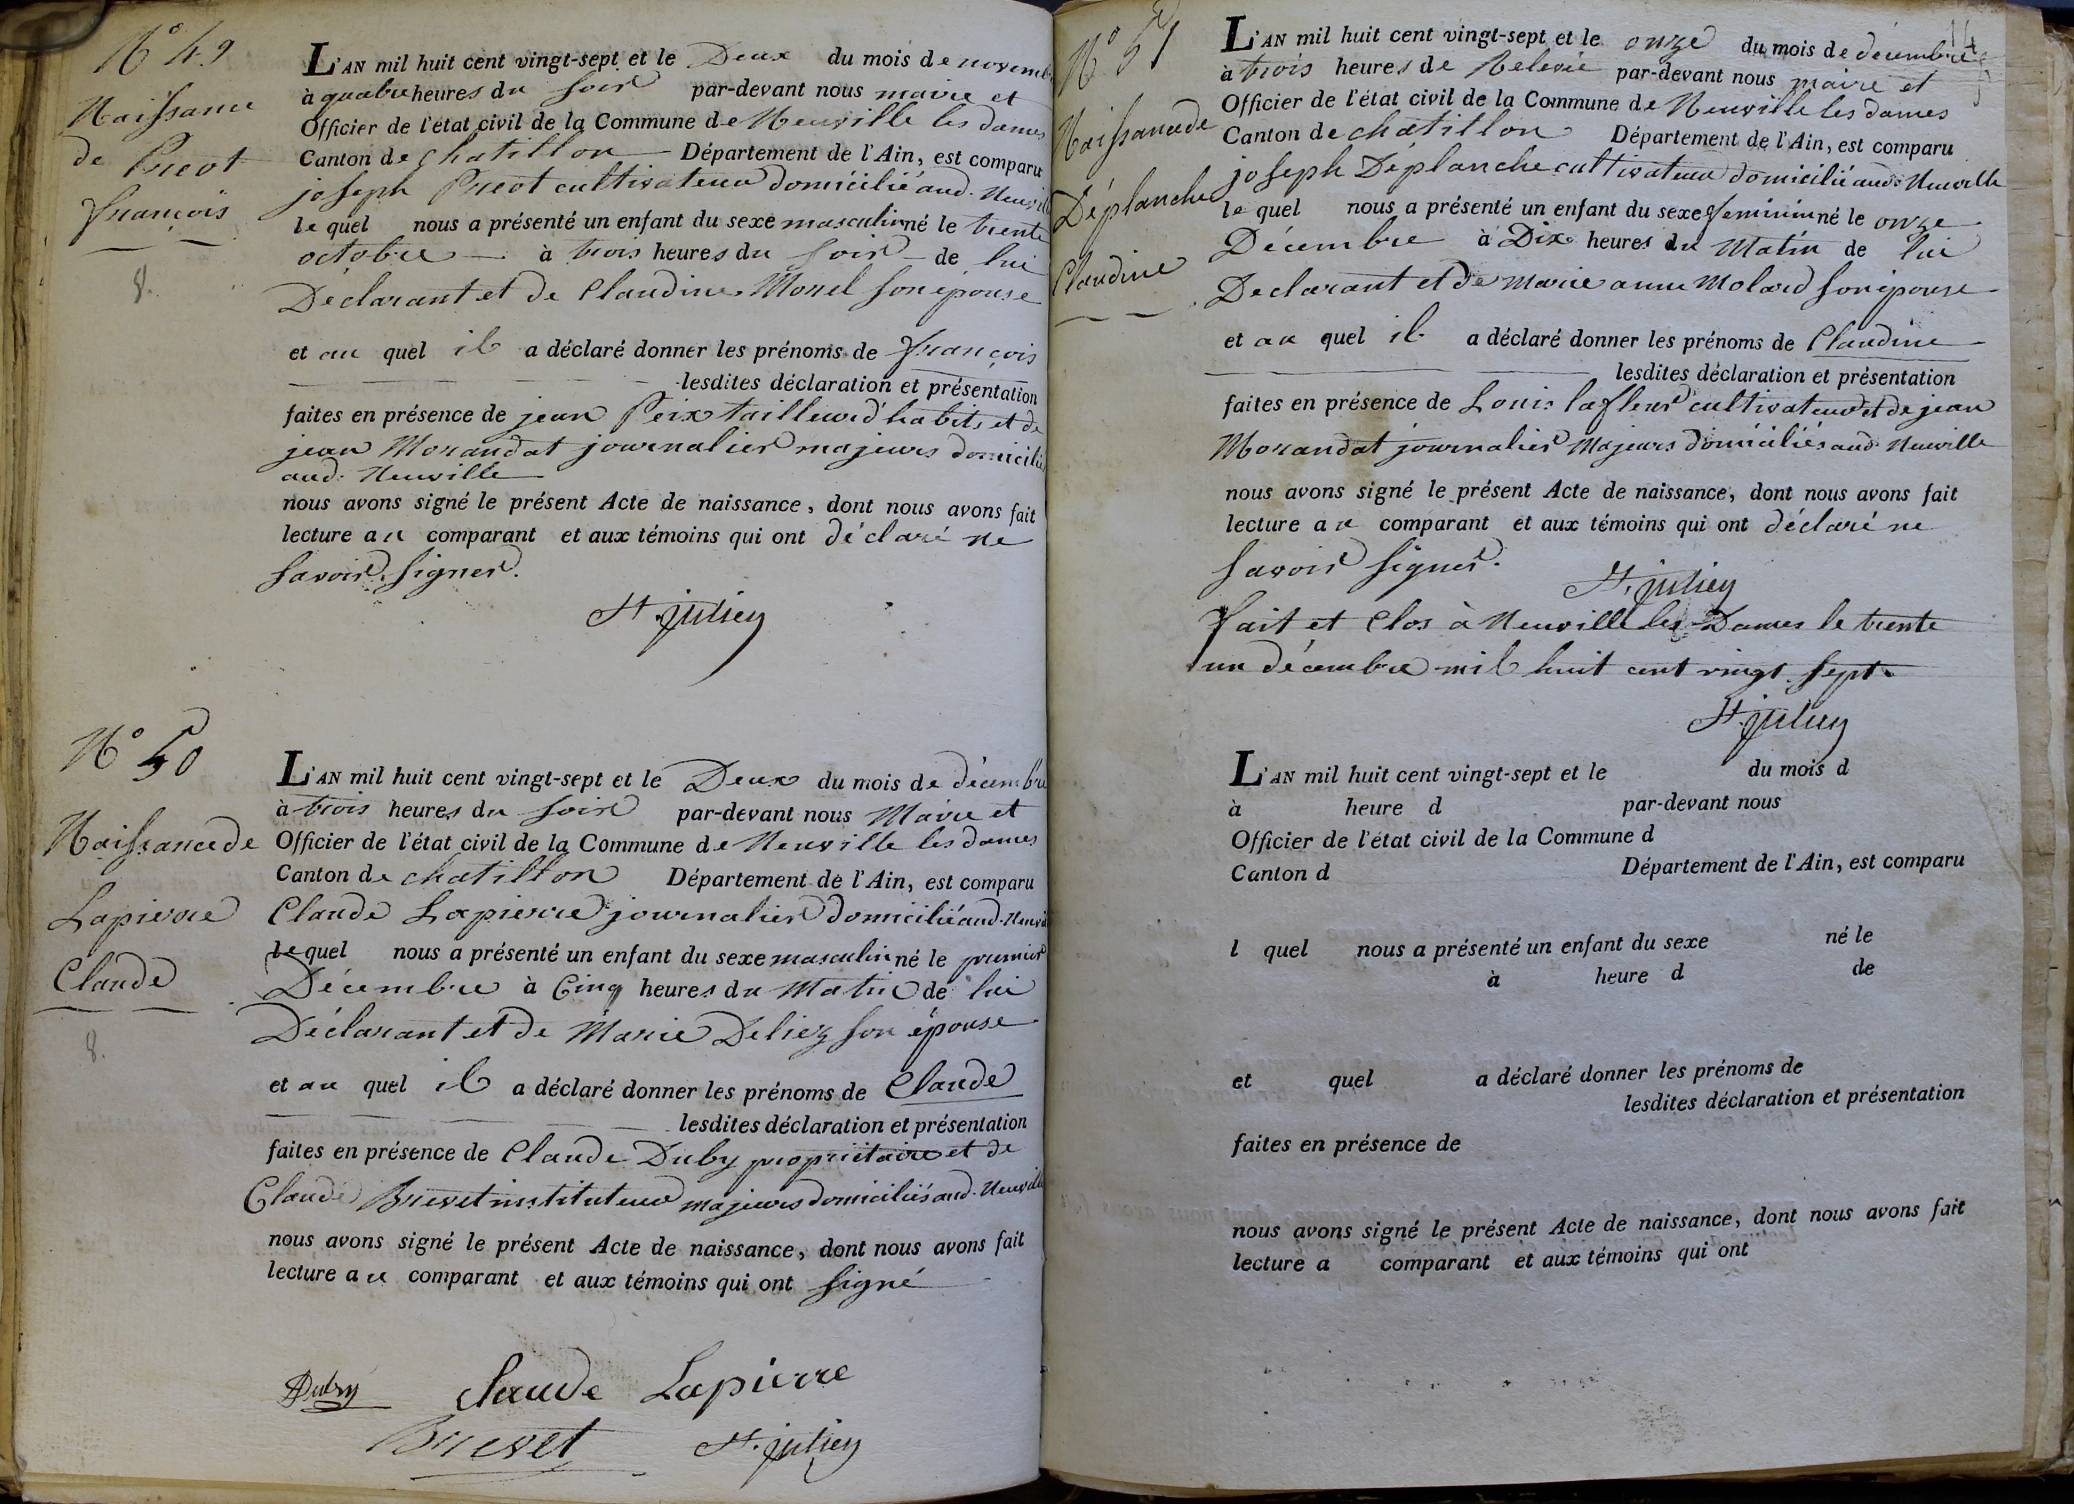 N° 49
Naissance
de Pucot
françois
8.
L'AN mil huit cent vingt-sept et le Deux du mois de novembre
à quatre heures du soir par-devant nous maire et
Officier de l'état civil de la Commune de Neuville les dames
Canton de chatillon Département de l'Ain, est comparu
joseph Pucot cultivateur domicilié aud. Neuville
le quel nous a présenté un enfant du sexe masculin né le trente
octobre à trois heures du soir de lui
Déclarant et de Claudine Morel son épouse
et au quel il a déclaré donner les prénoms de françois
lesdites déclaration et présentation
faites en présence de jean Peix tailleur d'habits et de
jean Morandat journalier majeurs domiciliés
aud. Neuville
nous avons signé le présent Acte de naissance, dont nous avons fait
lecture au comparant et aux témoins qui ont déclaré ne
savoir signer.
St. julien
N° 50
Naissance de
Lapierre
Claude
8.
L'AN mil huit cent vingt-sept et le Deux du mois de décembre
à trois heures du soir par-devant nous Maire et
Officier de l'état civil de la Commune de Neuville les dames
Canton de chatillon Département de l'Ain, est comparu
Claude Lapierre journalier domicilié aud. Neuville
le quel nous a présenté un enfant du sexe masculin né le premier
Décembre à Cinq heures du Matin de lui
Déclarant et de Marie Deliez son épouse
et au quel il a déclaré donner les prénoms de Claude
lesdites déclaration et présentation
faites en présence de Claude Duby propriétaire et de
Claude Brevet instituteur majeurs domiciliés aud. Neuville
nous avons signé le présent Acte de naissance, dont nous avons fait
lecture au comparant et aux témoins qui ont signé
Duby Claude Lapierre
Brevet St. julien
14
N° 51
Naissance de
Déplanche
Claudine
L'AN mil huit cent vingt-sept et le onze du mois de décembre
à trois heures de Relevée par-devant nous maire et
Officier de l'état civil de la Commune de Neuville les dames
Canton de chatillon Département de l'Ain, est comparu
joseph Déplanche cultivateur domicilié aud. Neuville
le quel nous a présenté un enfant du sexe feminin né le onze
Décembre à Dix heures du Matin de lui
Declarant et de marie anne Molard son épouse
et au quel il a déclaré donner les prénoms de Claudine
lesdites déclaration et présentation
faites en présence de Louis lafleur cultivateur et de jean
Morandat journalier Majeurs domiciliés aud. Neuville
nous avons signé le présent Acte de naissance, dont nous avons fait
lecture au comparant et aux témoins qui ont déclaré ne
savoir signer.
St. julien
fait et Clos à Neuville les Dames le trente
un décembre mil huit cent vingt sept.
St. julien
L'AN mil huit cent vingt-sept et le du mois d
à heure d par-devant nous
Officier de l'état civil de la Commune d
Canton d Département de l'Ain, est comparu
l quel nous a présenté un enfant du sexe né le
à heure d de
et quel a déclaré donner les prénoms de
lesdites déclaration et présentation
faites en présence de
nous avons signé le présent Acte de naissance, dont nous avons fait
lecture a comparant et aux témoins qui ont